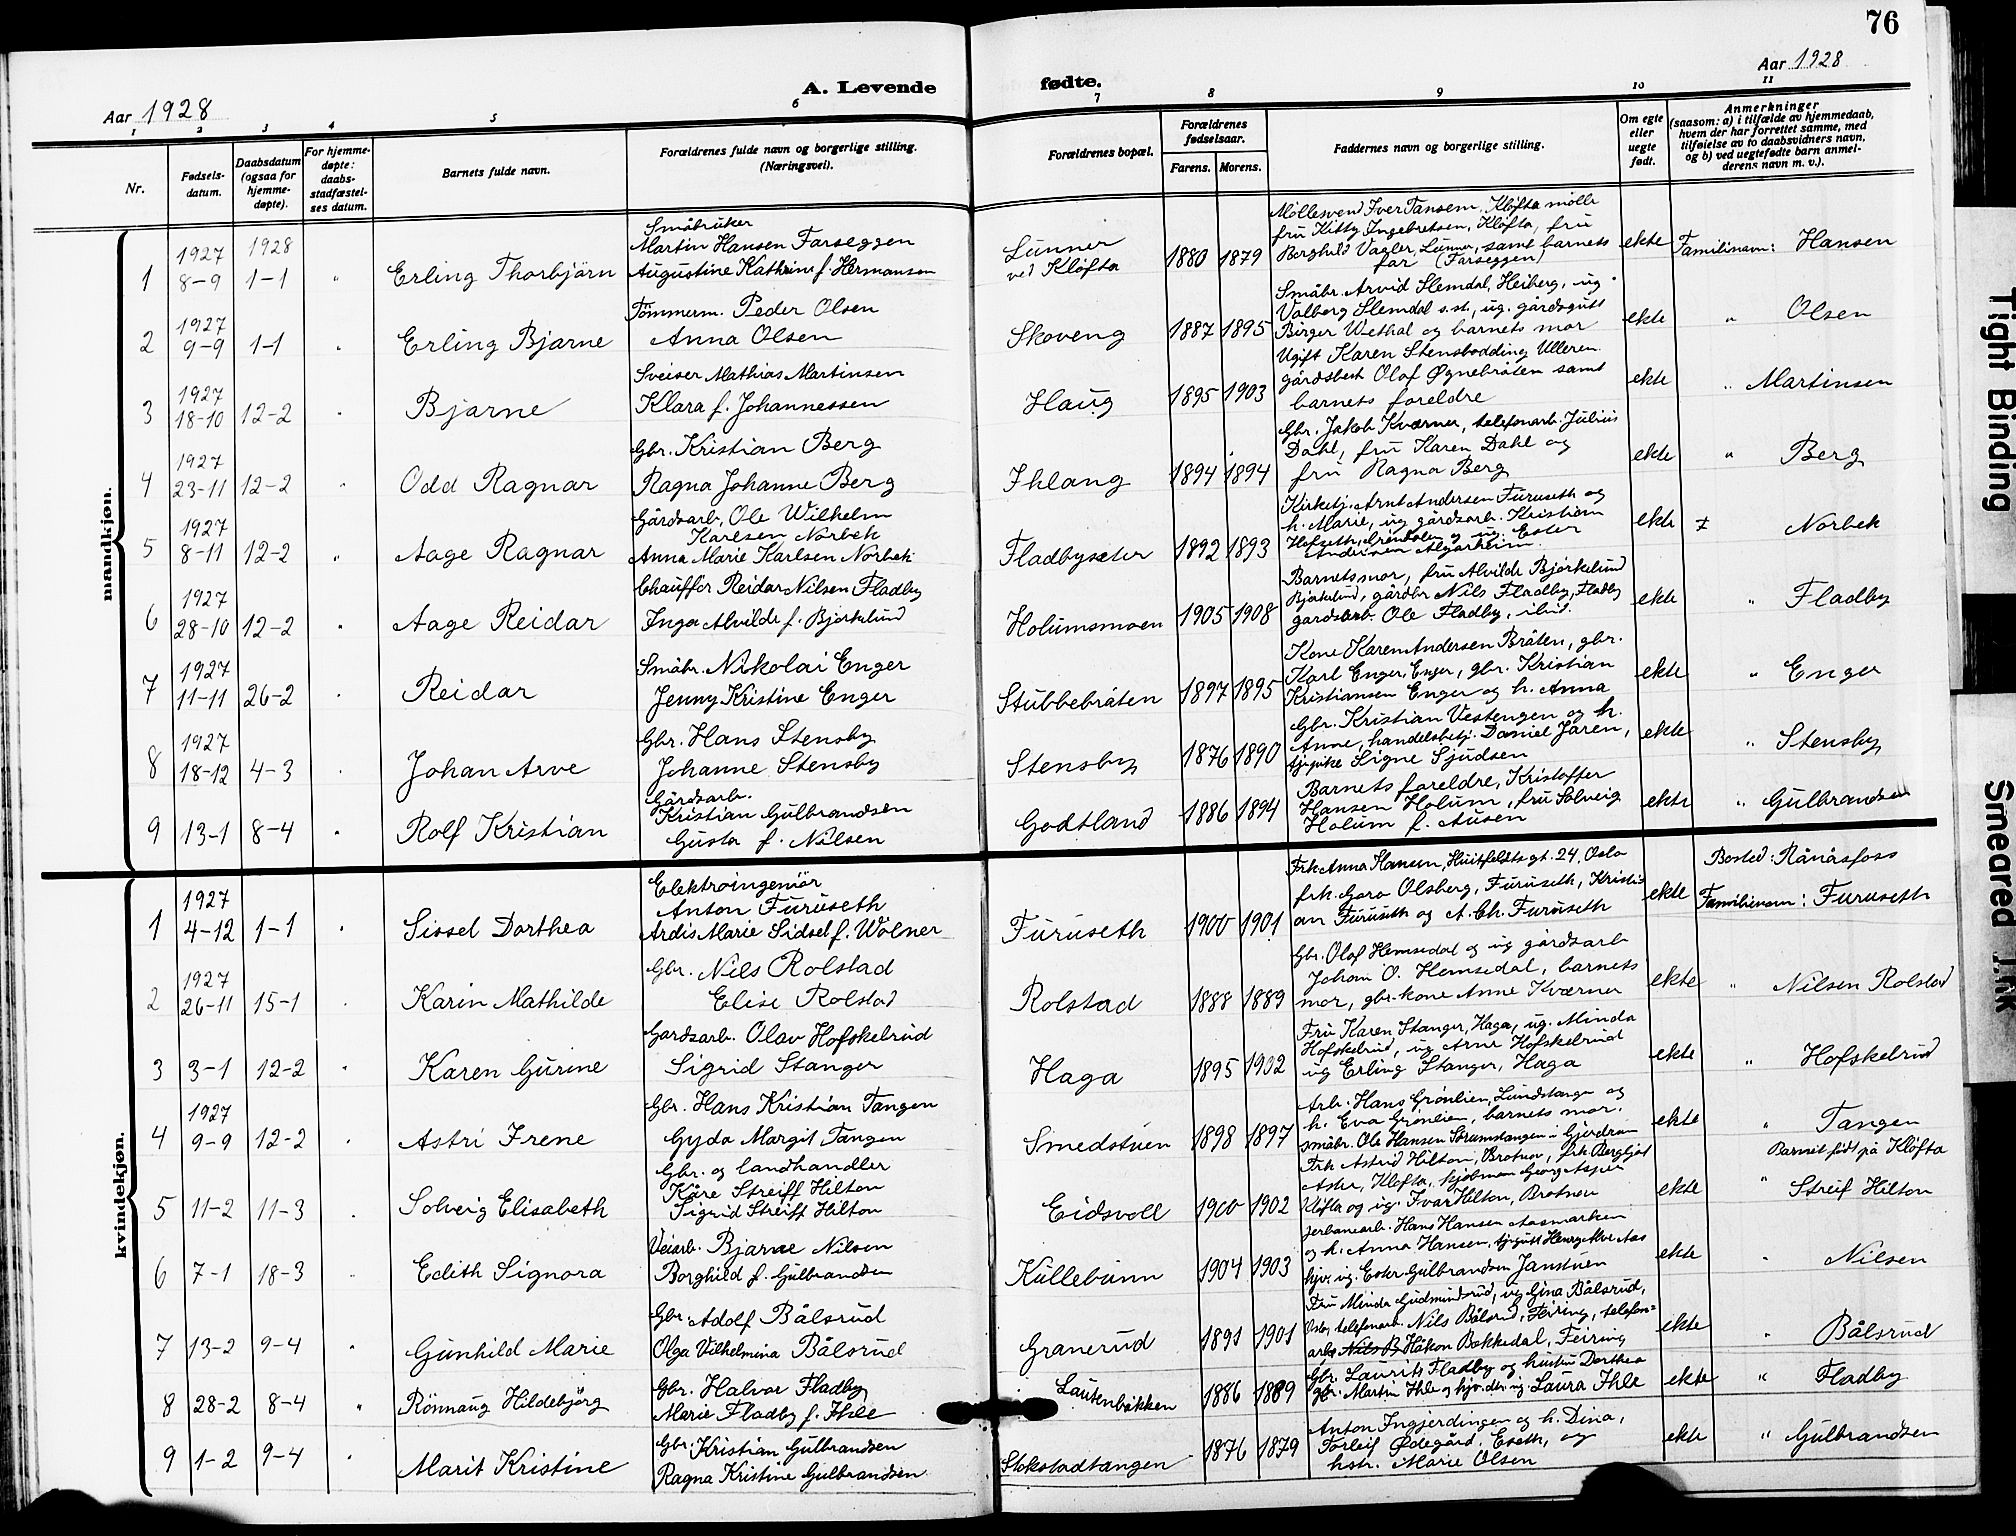 76
Aar 1928
A. Levende
fødte.
Aar 1928
1 2 3 4 5 6 7 8 9 10 11
Nr.
Fødsels-
datum.
Daabsdatum
(ogsaa for
hjemme-
døpte).
For hjemme-
døpte:
daabs-
stadfæstel-
ses datum.
Barnets fulde navn.
Forældrenes fulde navn og borgerlige stilling.
(Næringsvei).
Forældrenes bopæl.
Forældrenes
fødselsaar.
Farens. Morens.
Faddernes navn og borgerlige stilling.
Om egte
eller
uegte
født.
Anmerkninger
(saasom: a) i tilfælde av hjemmedaab,
hvem der har forrettet samme, med
tilføielse av to daabsvidners navn,
og b) ved uegtefødte barn anmel-
derens navn m. v.).
mandkjøn.
1 1927 8-9 1928 1-1 " Erling Thorbjörn
Småbruker
Martin Hansen Farseggen
Augustine Kathrine f. Hermansen
Lunner
ved Kløfta
1880 1879
Møllesvend Iver Tansem, Kløfta mølle
fru Kitty Ingebretsen, Kløfta, fru
Borghild Vagler, Lunner, samt barnets
far (Farseggen)
ekte Familienavn: Hansen
2 1927 9-9 1-1 " Erling Bjarne
Tömmerm. Peder Olsen
Anna Olsen
Skoveng
1887 1895
Småbr. Arvid Slemdal, Heiberg, ug.
Valborg Slemdal s.st., ug. gårdsgutt
Birger Wethal og barnets mor
ekte " Olsen
3 1927 18-10 12-2 " Bjarne
Sveiser Mathias Martinsen
Klara f. Johannessen
Haug
1895 1903
Ugift Karen Stensbodding Ulleren
gårdsbest. Olaf Øgnebråten samt
barnets foreldre
ekte " Martinsen
4 1927 23-11 12-2 " Odd Ragnar
Gbr. Kristian Berg
Ragna Johanne Berg
Ihlang
1894 1894
Gbr. Jakob Kværner, telefonarb. Julius
Dahl, fru Karen Dahl og
fru Ragna Berg
ekte " Berg
5 1927 8-11 12-2 " Aage Ragnar
Gårdsarb. Ole Wilhelm
Karlsen Norbek
Anna Marie Karlsen Norbek
Fladbyseter
1892 1893
Kirketj. Arnt Andersen Furuseth og
h. Marie, ug gårdsarb. Kristian
Hofseth, og ug. Ester
Andersen Algarheim
ekte Norbek
6 1927 28-10 12-2 " Aage Reidar
Chauffør Reidar Nilsen Fladby
Inga Alvilde f. Bjørkelund
Holumsmoen
1905 1908
Barnets mor, fru Alvilde Bjørkelund
Bjørkelund, gårdbr Nils Fladby, Fladby
gårdsarb. Ole Fladby, ibid.
ekte " Fladby
7 1927 11-11 26-2 " Reidar
Småbr. Nikolai Enger
Jenny Kristine Enger
Stubbebråten
1897 1895
Kone Karen Andersen Bråten, gbr.
Karl Enger, Enger, gbr. Kristian
Kristiansen Enger og h. Anna
ekte " Enger
8 1927 18-12 4-3 " Johan Arve
Gbr. Hans Stensby
Johanne Stensby
Stensby
1876 1890
Gbr. Kristian Vestengen og h.
Anne, handelsbetj. Daniel Jaren,
tjpike Signe Sjudsen
ekte " Stensby
9 13-1 8-4 " Rolf Kristian
Gårdsarb.
Kristian Gulbrandsen
Gusta f. Nilsen
Godtland
1886 1894
Barnets foreldre, Kristoffer
Hansen Holum, fru Solveig
Holum f. Ausen
ekte " Gulbrandsen
kvindekjøn.
1 1927 4-12 1-1 " Sissel Dorthea
Elektroingeniör
Anton Furuseth
Ardis Marie Sidsel f. Wölner
Furuseth
1900 1901
Frk. Anna Hansen, Huitfeldtsgt. 24, Oslo
frk. Gora Olsberg, Furuseth, Kristi-
an Furuseth og A. Ch. Furuseth
ekte Bosted: Rånåsfoss
Familienavn: Furuseth
2 1927 26-11 15-1 " Karin Mathilde
Gbr. Nils Rolstad
Elise Rolstad
Rolstad
1888 1889
Gbr. Olaf Hemsedal og ug gårdsarb
Johan O. Hemsedal, barnets
mor, gbr.kone Anne Kværner
ekte " Nilsen Rolstad
3 3-1 12-2 " Karen Gurine
Gardsarb. Olav Hofskelrud
Sigrid Stanger
Haga
1895 1902
Fru Karen Stanger, Haga, ug. Minda
Hofskelrud, ug Arne Hofskelrud
ug Erling Stanger, Haga
ekte " Hofskelrud
4 1927 9-9 12-2 " Astri Irene
Gbr. Hans Kristian Tangen
Gyda Margit Tangen
Smedstuen
1898 1897
Arb. Hans Grønlien, Lundstangen og
h. Eva Grønlien, barnets mor,
småbr. Ole Hansen Strumstangen i Gjerdrum
ekte " Tangen
Barnet født på Kløfta
5 11-2 11-3 " Solveig Elisabeth
Gbr. og landhandler
Kåre Streiff Hilton
Sigrid Streiff Hilton
Eidsvoll
1900 1902
Frk Astrid Hilton, Brotnov, frk Bergljot
Aske, Kløfta, kjøbman Georg
Kløfta og ug. Ivar Hilton, Brotnov
ekte " Streif Hilton
6 7-1 18-3 " Edith Signora
Veiarb. Bjarne Nilsen
Borghild f. Gulbrandsen
Kullebunn
1904 1903
Jerbanearb. Hans Hansen Aasmarken
og h. Anna Hansen, tjgutt Henry Alve Aas
hjv. ug. Ester Gulbrandsen Janstuen
ekte " Nilsen
7 13-2 9-4 " Gunhild Marie
Gbr. Adolf Bålsrud
Olga Vilhelmina Bålsrud
Granerud
1891 1901
Fru Minda Gudmundsrud, ug Gina Bålsrud,
Oslo, telefonarb. Nils Bålsrud, Feiring, telefon=
arb. Håkon Bakkedal, Feiring
ekte " Bålsrud
8 28-2 8-4 " Rönnaug Hildebjörg
Gbr. Halvor Fladby
Marie Fladby f. Ihle
Lautenbakken
1886 1889
Gbr. Laurits Fladby og hustru Dorthea
gbr. Martin Ihle og hjv.der ug. Laura Ihle
ekte " Fladby
9 1-2 9-4 " Marit Kristine
Gbr. Kristian Gulbrandsen
Ragna Kristine Gulbrandsen
Stokstadtangen
1876 1879
Anton Ingjerdingen og h. Dina,
Torleif Ødegård, Eseth, og
hstr. Marie Olsen
ekte " Gulbrandsen
Tight Binding
Smeared Ink